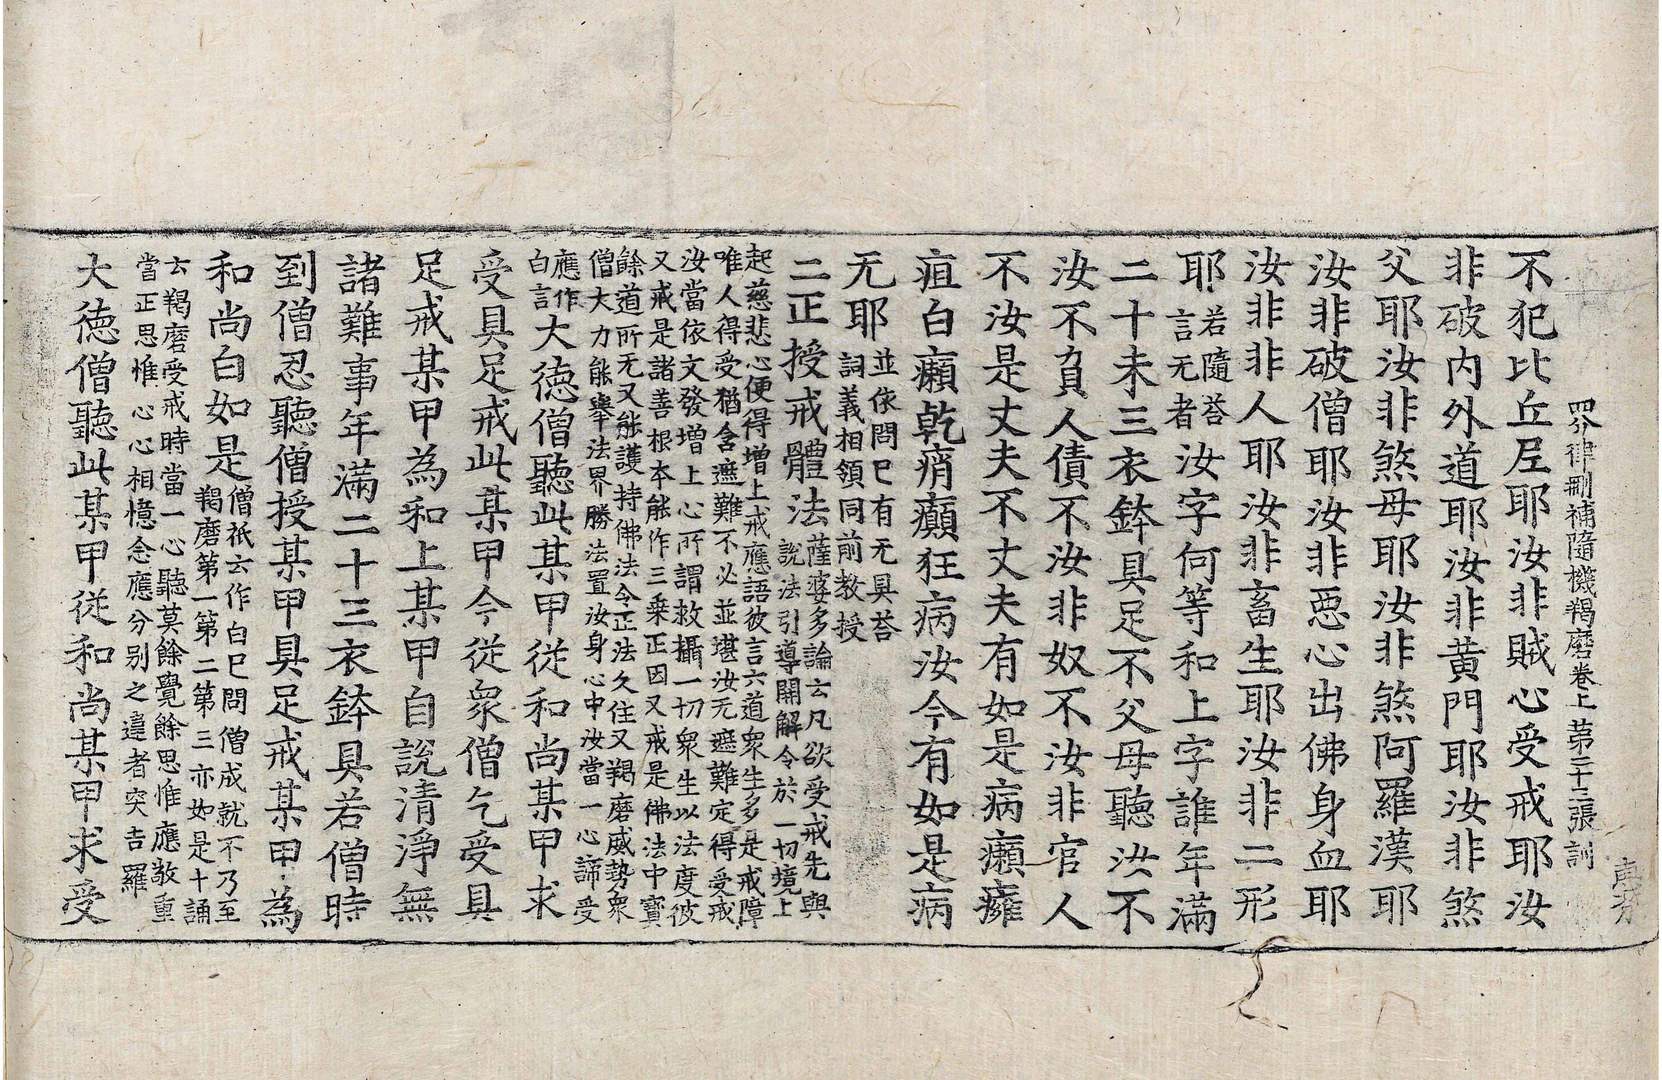 四分律刪補隨機羯磨卷上 第二十三張 訓
不犯比丘尼耶汝非賊心受戒耶汝
非破內外道耶汝非黃門耶汝非煞
父耶汝非煞母耶汝非煞阿羅漢耶
汝非破僧耶汝非惡心出佛身血耶
汝非非人耶汝非畜生耶汝非二形
耶若隨荅言无者汝字何等和上字誰年滿
二十未三衣鉢具足不父母聽汝不
汝不負人債不汝非奴不汝非官人
不汝是丈夫不丈夫有如是病癩癰
疽白癩乹痟癲狂病汝今有如是病
无耶並依問巳有无具荅詞義相領同前教授
二正授戒體法薩婆多論云凡欲受戒先與說法引導開解令於一切境上
起慈悲心便得增上戒應語彼言六道衆生多是戒障
唯人得受猶含遮難不必並堪汝无遮難定得受戒
汝當依文發增上心所謂救攝一切衆生以法度彼
又戒是諸善根本能作三乗正因又戒是佛法中寶
餘道所无又能護持佛法令正法久住又羯磨威勢衆
僧大力能舉法界勝法置汝身心中汝當一心諦受
應作白言大徳僧聽此某甲從和尚某甲求
受具足戒此某甲今從衆僧乞受具
足戒某甲為和上某甲自說清淨無
諸難事年滿二十三衣鉢具若僧時
到僧忍聽僧授某甲具足戒某甲為
和尚白如是僧祇云作白巳問僧成就不乃至羯磨第一第二第三亦如是十誦
云羯磨受戒時當一心聽莫餘覺餘思惟應敬重
當正思惟心心相憶念應分別之違者突吉羅
大徳僧聽此某甲從和尚某甲求受